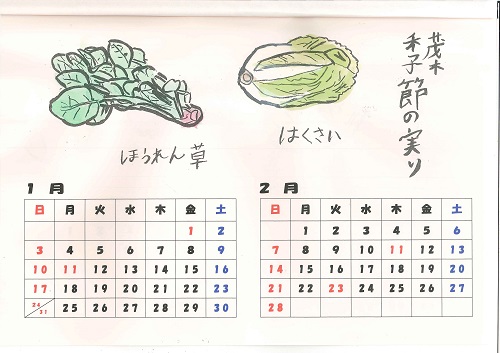 茂木
季節の実り
ほうれん草
はくさい
1 月
日 月 火 水 木 金 土
1 2
3 4 5 6 7 8 9
10 11 12 13 14 15 16
17 18 19 20 21 22 23
24/31 25 26 27 28 29 30
2 月
日 月 火 水 木 金 土
1 2 3 4 5 6
7 8 9 10 11 12 13
14 15 16 17 18 19 20
21 22 23 24 25 26 27
28